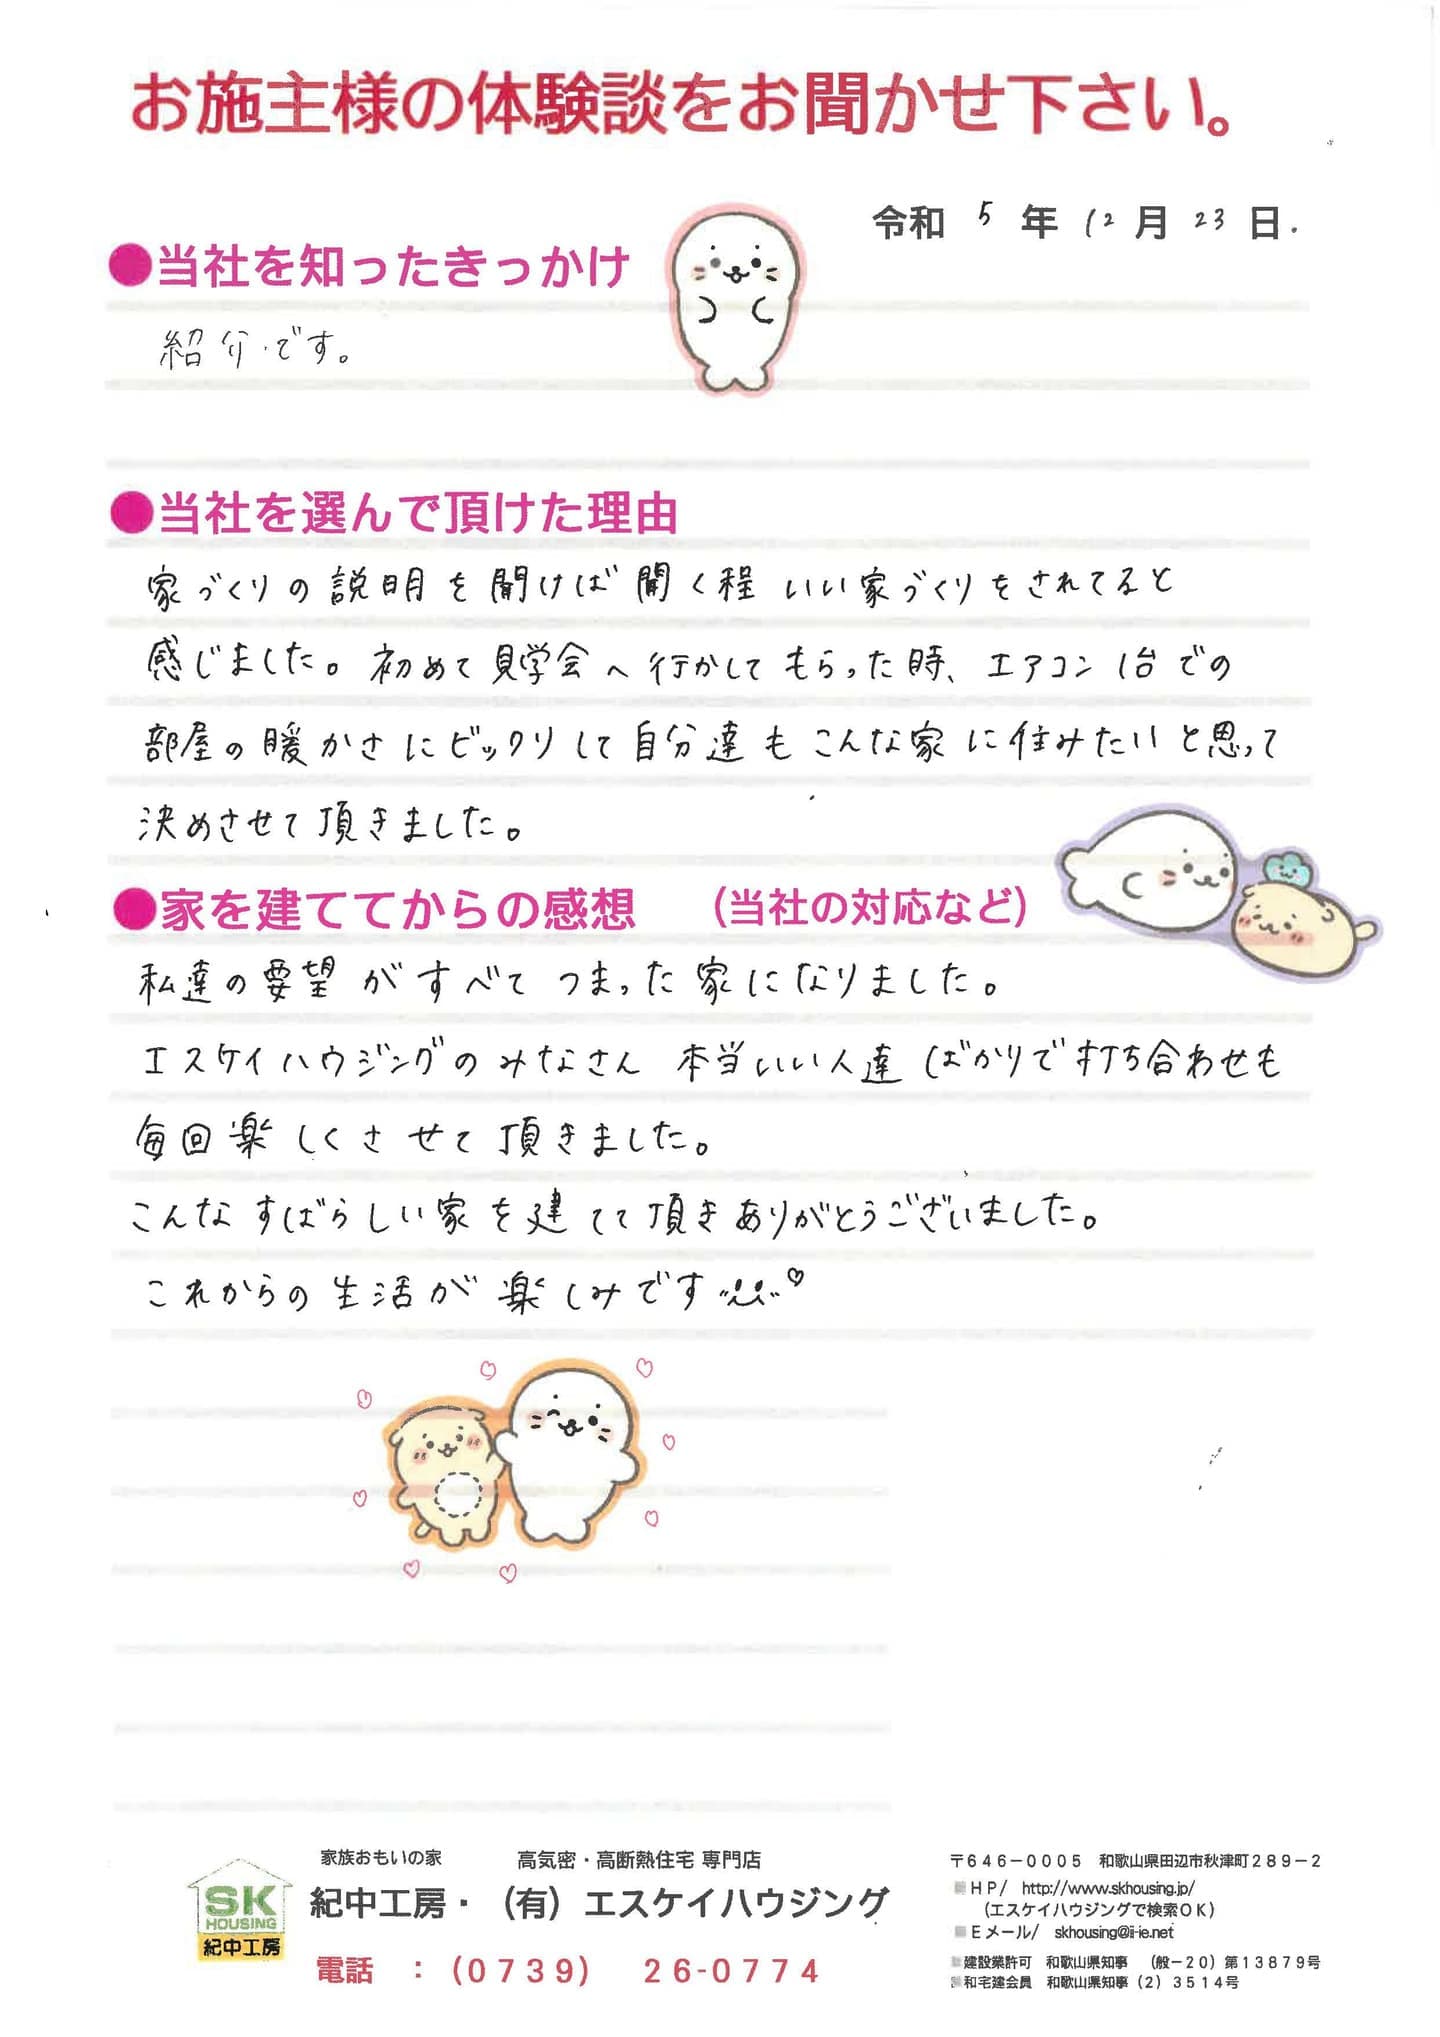 お施主様の体験談をお聞かせ下さい。
令和 5 年 12 月 23 日.
●当社を知ったきっかけ
紹介です。
●当社を選んで頂けた理由
家づくりの説明を聞けば聞く程いい家づくりをされてると
感じました。初めて見学会へ行かしてもらった時、エアコン1台での
部屋の暖かさにビックリして自分達もこんな家に住みたいと思って
決めさせて頂きました。
●家を建ててからの感想 (当社の対応など)
私達の要望がすべてつまった家になりました。
エスケイハウジングのみなさん本当いい人達ばかりで打ち合わせも
毎回楽しくさせて頂きました。
こんなすばらしい家を建てて頂きありがとうございました。
これからの生活が楽しみです♡
SK
HOUSING
紀中工房
家族おもいの家 高気密・高断熱住宅 専門店
紀中工房・(有)エスケイハウジング
電話 :(0739) 26-0774
〒646-0005 和歌山県田辺市秋津町289-2
■HP/ http://www.skhousing.jp/
(エスケイハウジングで検索OK)
■Eメール/ skhousing@ii-ie.net
■建設業許可 和歌山県知事 (般-20)第13879号
■和宅建会員 和歌山県知事(2)3514号